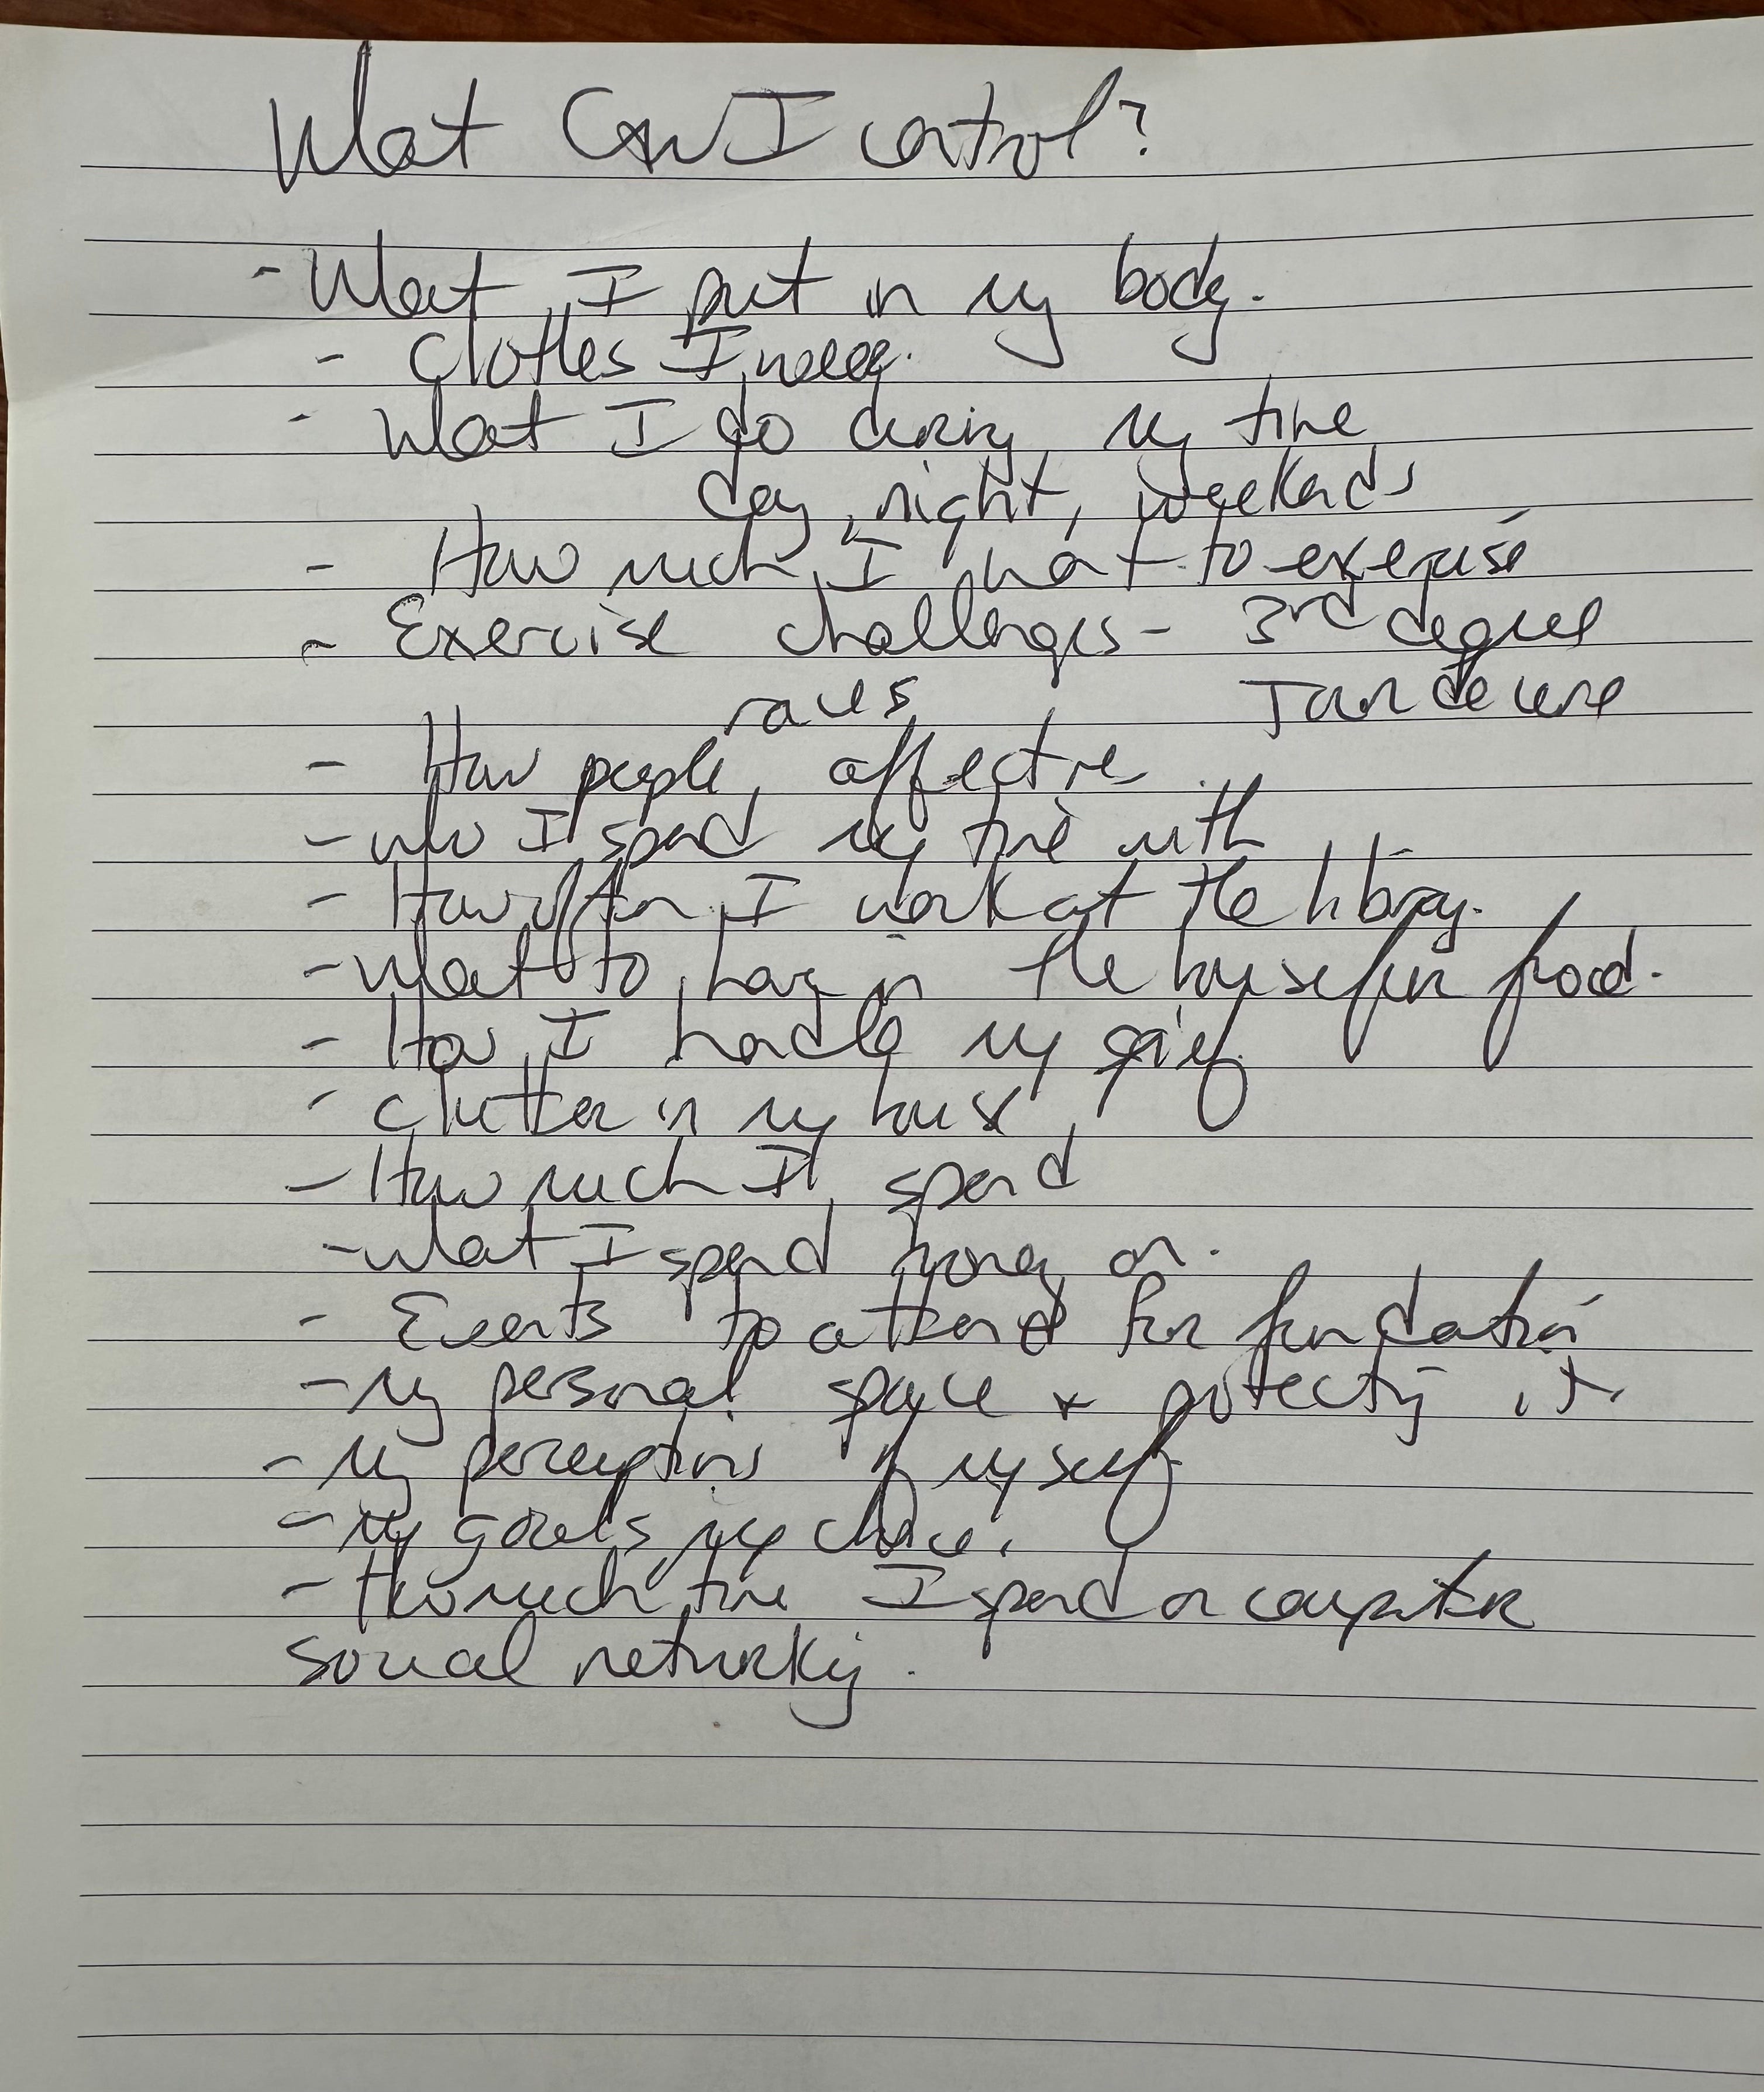 What Can I control?
- What I put in my body.
- Clothes I
- What I do during my time
day, night, weekends
- How much I want to exercise
- Exercise challenges - 3rd degree
races Tour de
- How people affect me
- who I spend my time with
- How often I work at the library.
- What to have in the house for food.
- How I handle my grief
- clutter in my house
- How much I spend
- what I spend money on.
- Events to attend for foundation
- my personal space & protecting it.
- My perceptions of myself
- my goals, my choice.
- How much time I spend on computer
social networking.